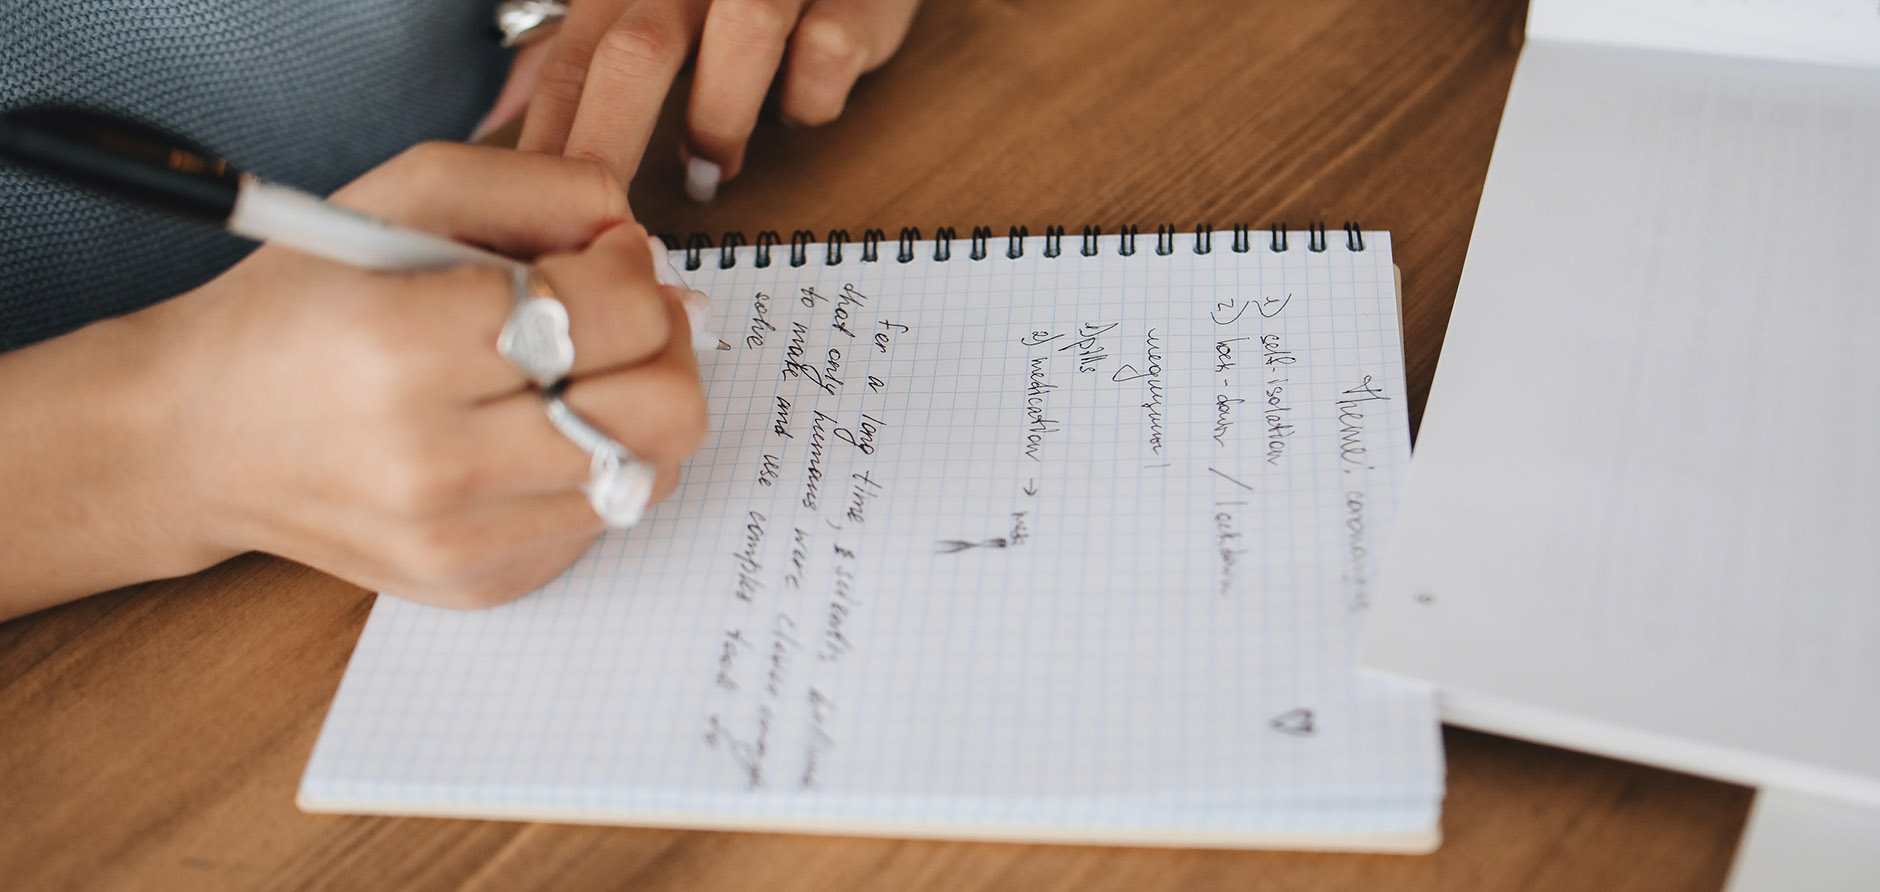 Theme: coronavirus
1) self-isolation
2) lock-down / lockdown
медицина
1) pills
2) medication →
For a long time, scientists believed
that only humans were clever enough
to make and use complex tools to
solve